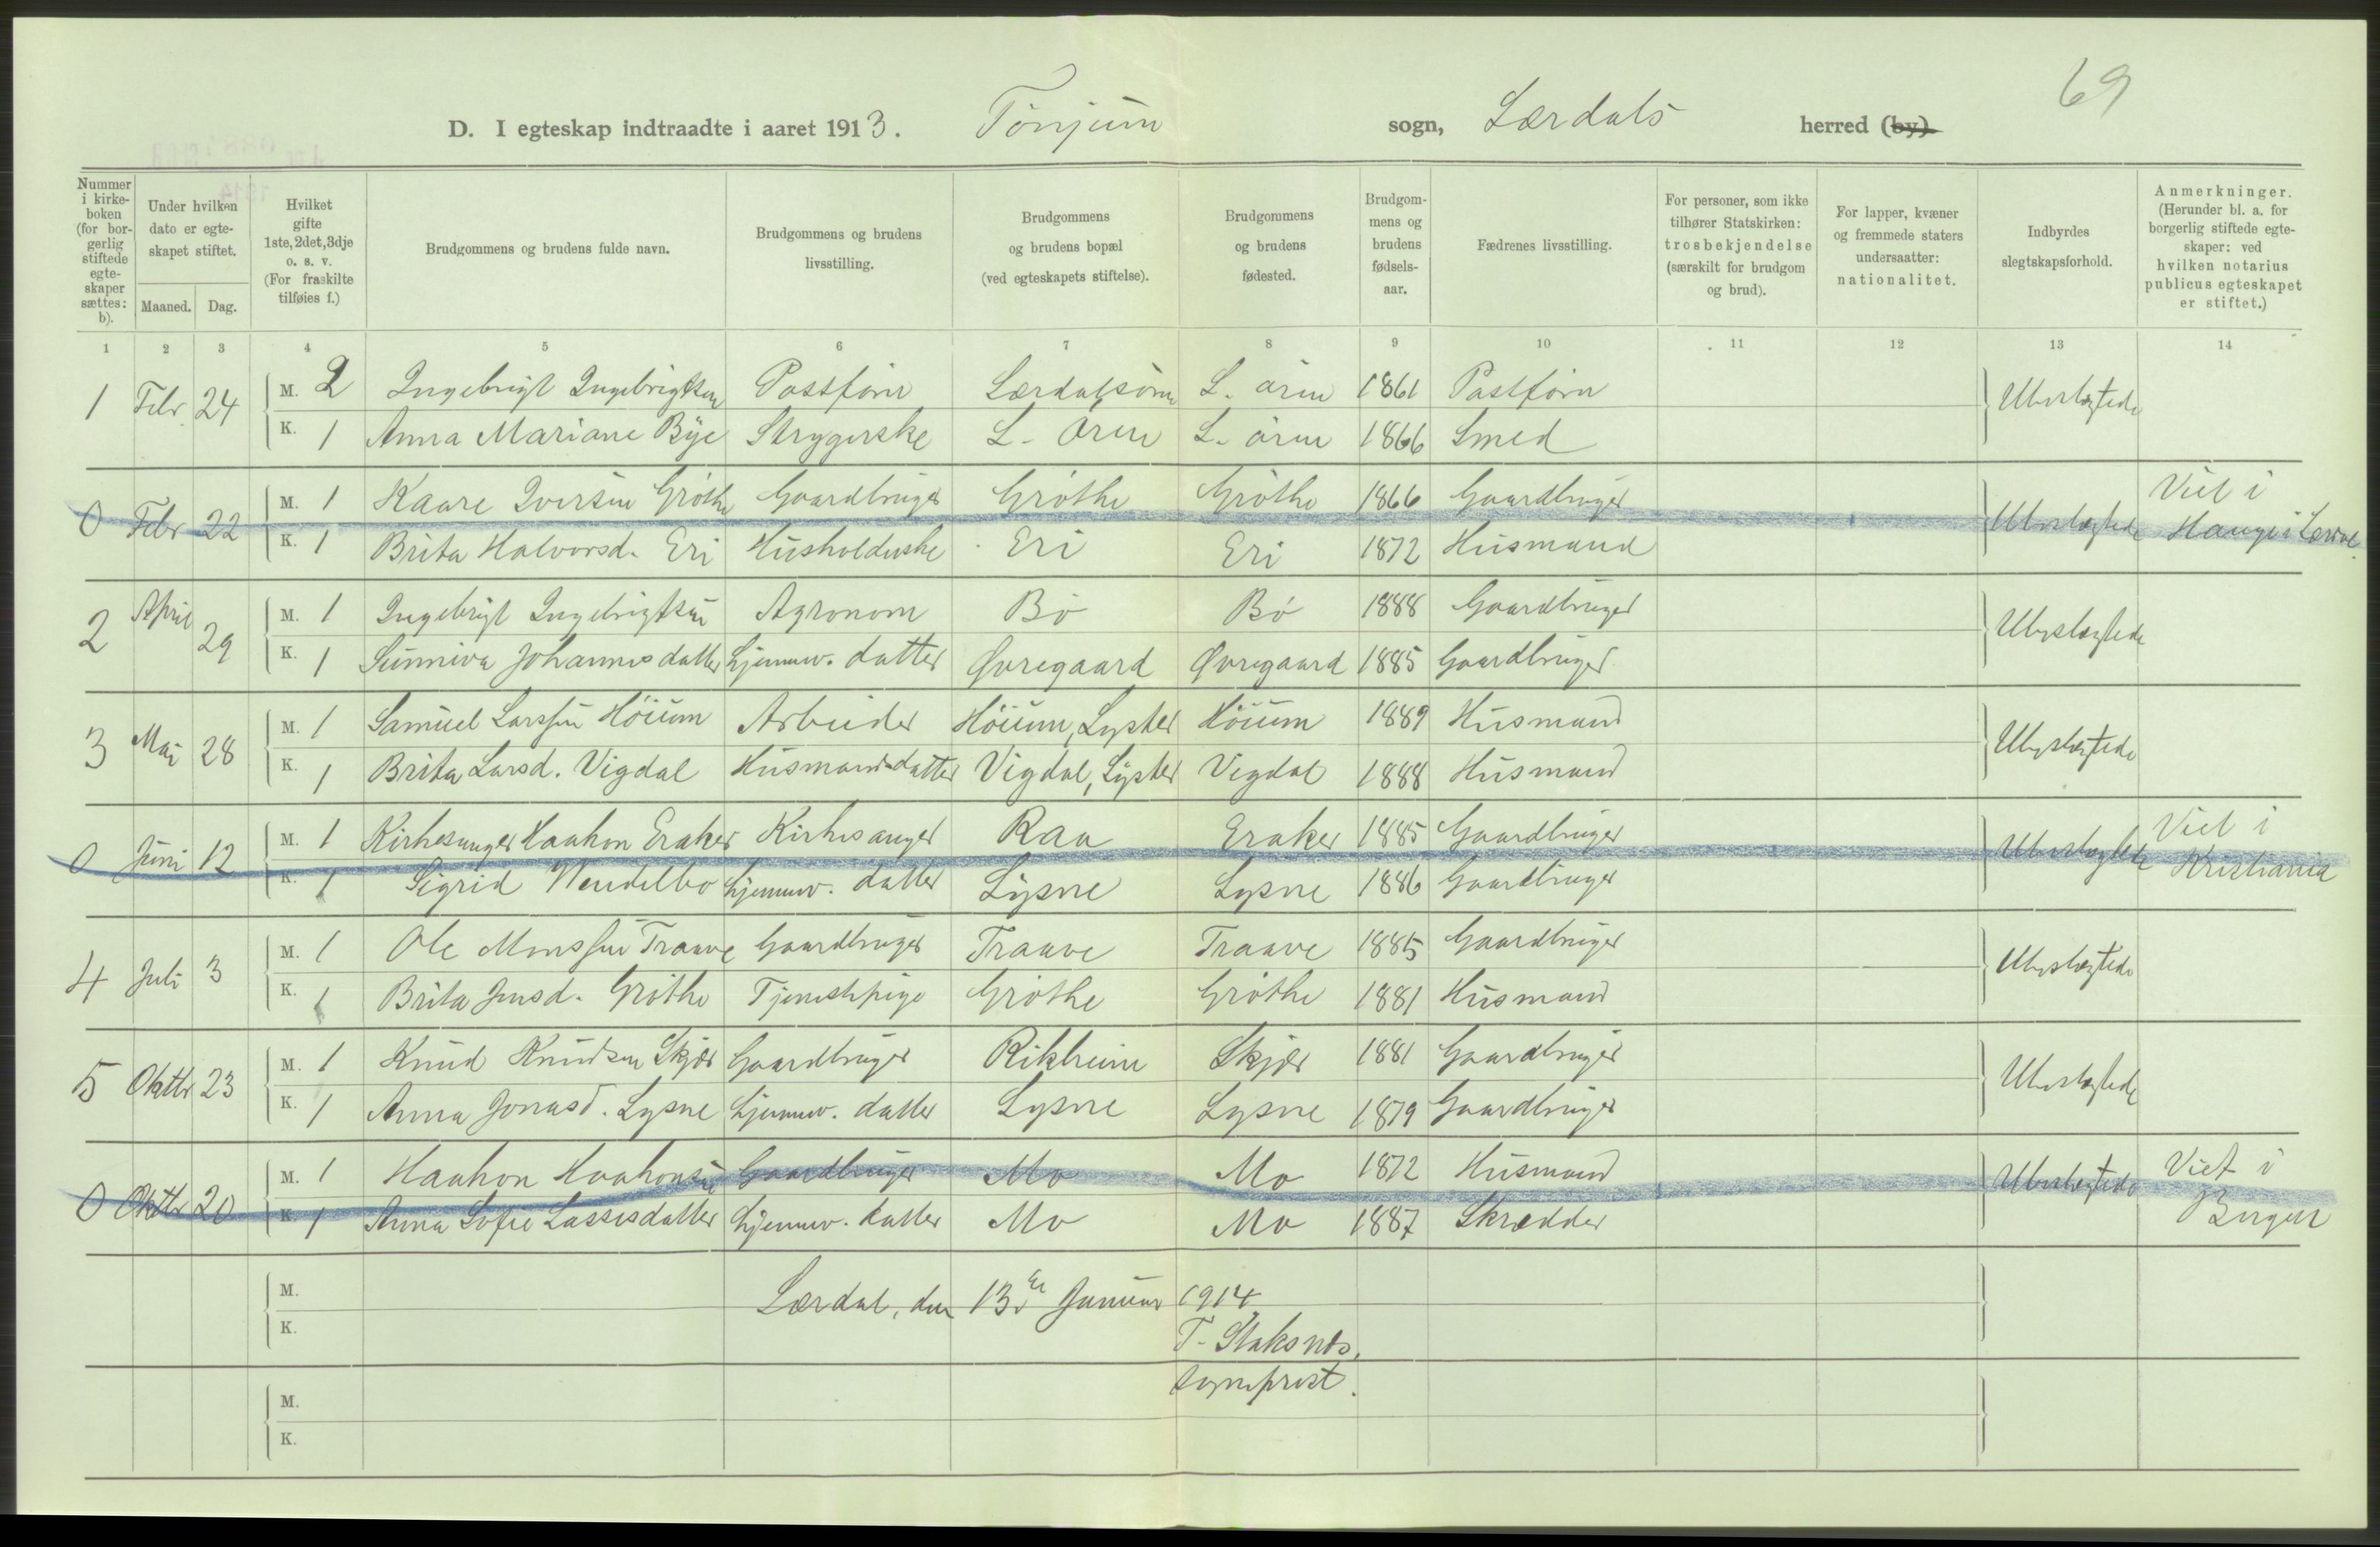 69
D. I egteskap indtraadte i aaret 1913. Tönjum sogn, Lærdals herred (by)
Nummer i kirkeboken (for borgerlig stiftede egteskaper sættes: b).
Under hvilken dato er egteskapet stiftet.
Maaned. Dag.
Hvilket gifte 1ste, 2det, 3dje o. s. v. (For fraskilte tilføies f.)
Brudgommens og brudens fulde navn.
Brudgommens og brudens livsstilling.
Brudgommens og brudens bopæl (ved egteskapets stiftelse).
Brudgommens og brudens fødested.
Brudgommens og brudens fødselsaar.
Fædrenes livsstilling.
For personer, som ikke tilhører Statskirken: trosbekjendelse (særskilt for brudgom og brud).
For lapper, kvæner og fremmede staters undersaatter: nationalitet.
Indbyrdes slegtskapsforhold.
Anmerkninger. (Herunder bl. a. for borgerlig stiftede egteskaper: ved hvilken notarius publicus egteskapet er stiftet.)
1 2 3 4 5 6 7 8 9 10 11 12 13 14
1 Febr 24 M. 2 Ingebrigt Ingebrigtsen Postförer Lærdalsören L. ören 1861 Postförer Ubeslægtede
K. 1 Anna Mariane Bye Strygerske L. Ören L. ören 1866 Smed
0 Febr 22 M. 1 Kaare Iversen Gröthe Gaardbruger Gröthe Gröthe 1866 Gaardbruger Ubeslægtede Viet i
K. 1 Brita Halvorsd. Eri Husholderske Eri Eri 1872 Husmand Hauge i Lærdal
2 April 29 M. 1 Ingebrigt Ingebrigtsen Agronom Bö Bö 1888 Gaardbruger Ubeslægtede
K. 1 Sunniva Johannesdatter hjemmev. datter Øvregaard Øvregaard 1885 Gaardbruger
3 Mai 28 M. 1 Samuel Larssen Höium Arbeider Höium, Lyster Höium 1889 Husmand Ubeslægtede
K. 1 Brita Larsd. Vigdal Husmandsdatter Vigdal, Lyster Vigdal 1888 Husmand
0 Juni 12 M. 1 Kirkesanger Haakon Eraker Kirkesanger Raa Eraker 1885 Gaardbruger Ubeslægtede Viet i
K. 1 Sigrid Wendelbo hjemmev. datter Lysne Lysne 1886 Gaardbruger Kristiania
4 Juli 3 M. 1 Ole Monssen Traave Gaardbruger Traave Traave 1885 Gaardbruger Ubeslægtede
K. 1 Brita Jensd. Gröthe Tjenestpige Gröthe Gröthe 1881 Husmand
5 Oktbr 23 M. 1 Knud Knudsen Skjær Gaardbruger Rikheim Skjær 1881 Gaardbruger Ubeslægtede
K. 1 Anna Jonasd. Lysne hjemmev. datter Lysne Lysne 1879 Gaardbruger
0 Oktbr 20 M. 1 Haakon Haakonsen Gaardbruger Mo Mo 1872 Husmand Ubeslægtede Viet i
K. 1 Anna Sofie Lassesdatter hjemmev. datter Mo Mo 1887 Skrædder Bergen
M. Lærdal, den 13de Januar 1914
K. T. Slaksnes.
sogneprest.
M.
K.